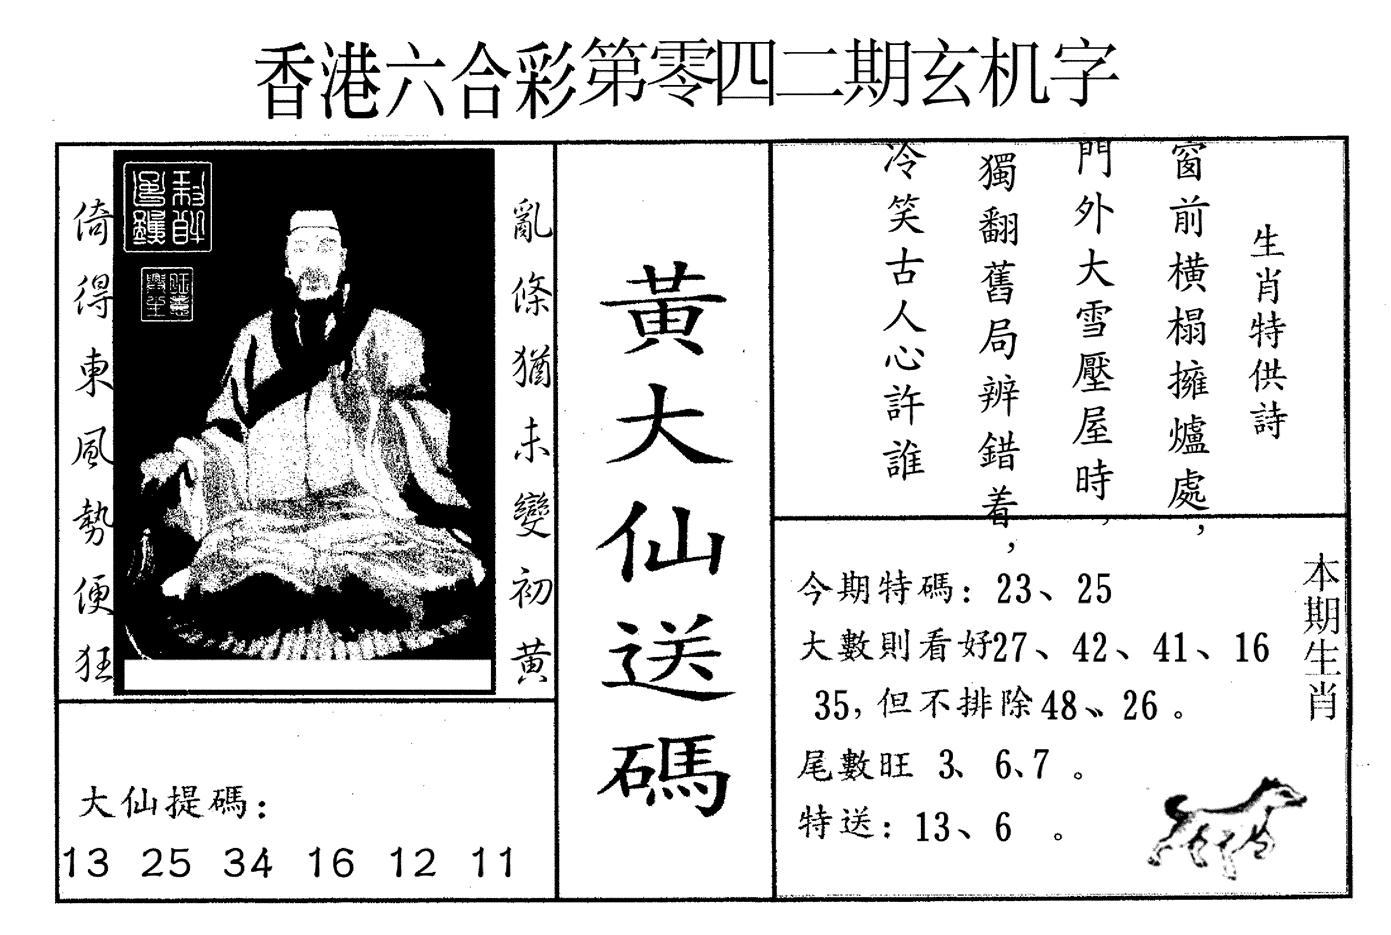 香港六合彩第零四二期玄机字
亂條猶未變初黄
倚得東風勢便狂
大仙提碼：
13 25 34 16 12 11
黃大仙送碼
生肖特供詩
窗前橫榻擁爐處，
門外大雪壓屋時，
獨翻舊局辨錯着，
冷笑古人心許誰
本期生肖
今期特碼：23、25
大數則看好27、42、41、16
35，但不排除48、26。
尾數旺 3、6、7。
特送：13、6 。